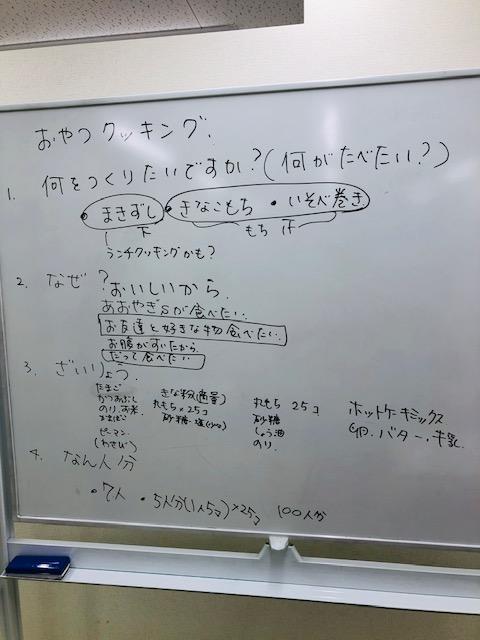 おやつクッキング.
1. 何をつくりたいですか?(何がたべたい?)
・まきずし ・きなこもち ・いそべ巻き
下 もち 下
ランチクッキングかも?
2. なぜ?
おいしいから.
あおやぎsが食べたい...
お友達と好きな物食べたい...
お腹がすいたから
だって食べたい...
3. ざいりょう
たまご きな粉(適量) 丸もち 25コ ホットケーキミックス
かつおぶし 丸もち×25コ 砂糖 卵.バター.牛乳
のり.お米 砂糖・塩(少々) しょう油
のり.
ピーマン
(わさび)
4. なん人分
・7人 ・5人分(1人5コ)×25コ 100人分